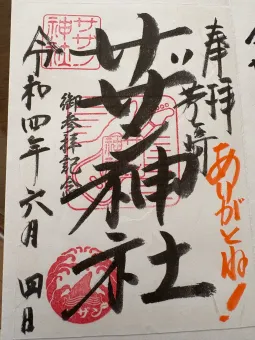 奉拝
茅ヶ崎
ありがとね!
サザン神社
御参拝記念
サザン
神社
令和四年六月四日
サザン